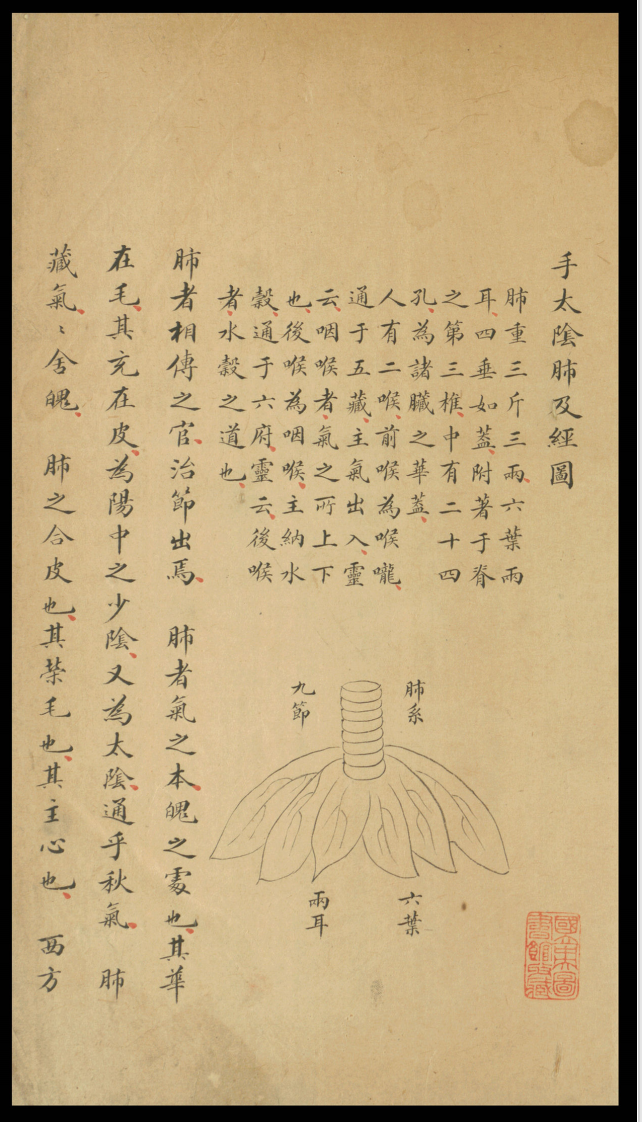 手太陰肺及經圖
肺重三斤三兩六葉兩
耳四垂如蓋附著于脊
之第三椎中有二十四
孔為諸臟之華蓋
人有二喉前喉為喉嚨
通于五藏主氣出入靈
云咽喉者氣之所上下
也後喉為咽喉主納水
穀通于六府靈云後喉
者水穀之道也
肺系
九節
六葉
兩耳
肺者相傳之官治節出焉 肺者氣之本魄之處也其華
在毛其充在皮為陽中之少陰又為太陰通乎秋氣 肺
藏氣〻舍魄 肺之合皮也其榮毛也其主心也 西方
國立東圖書館藏